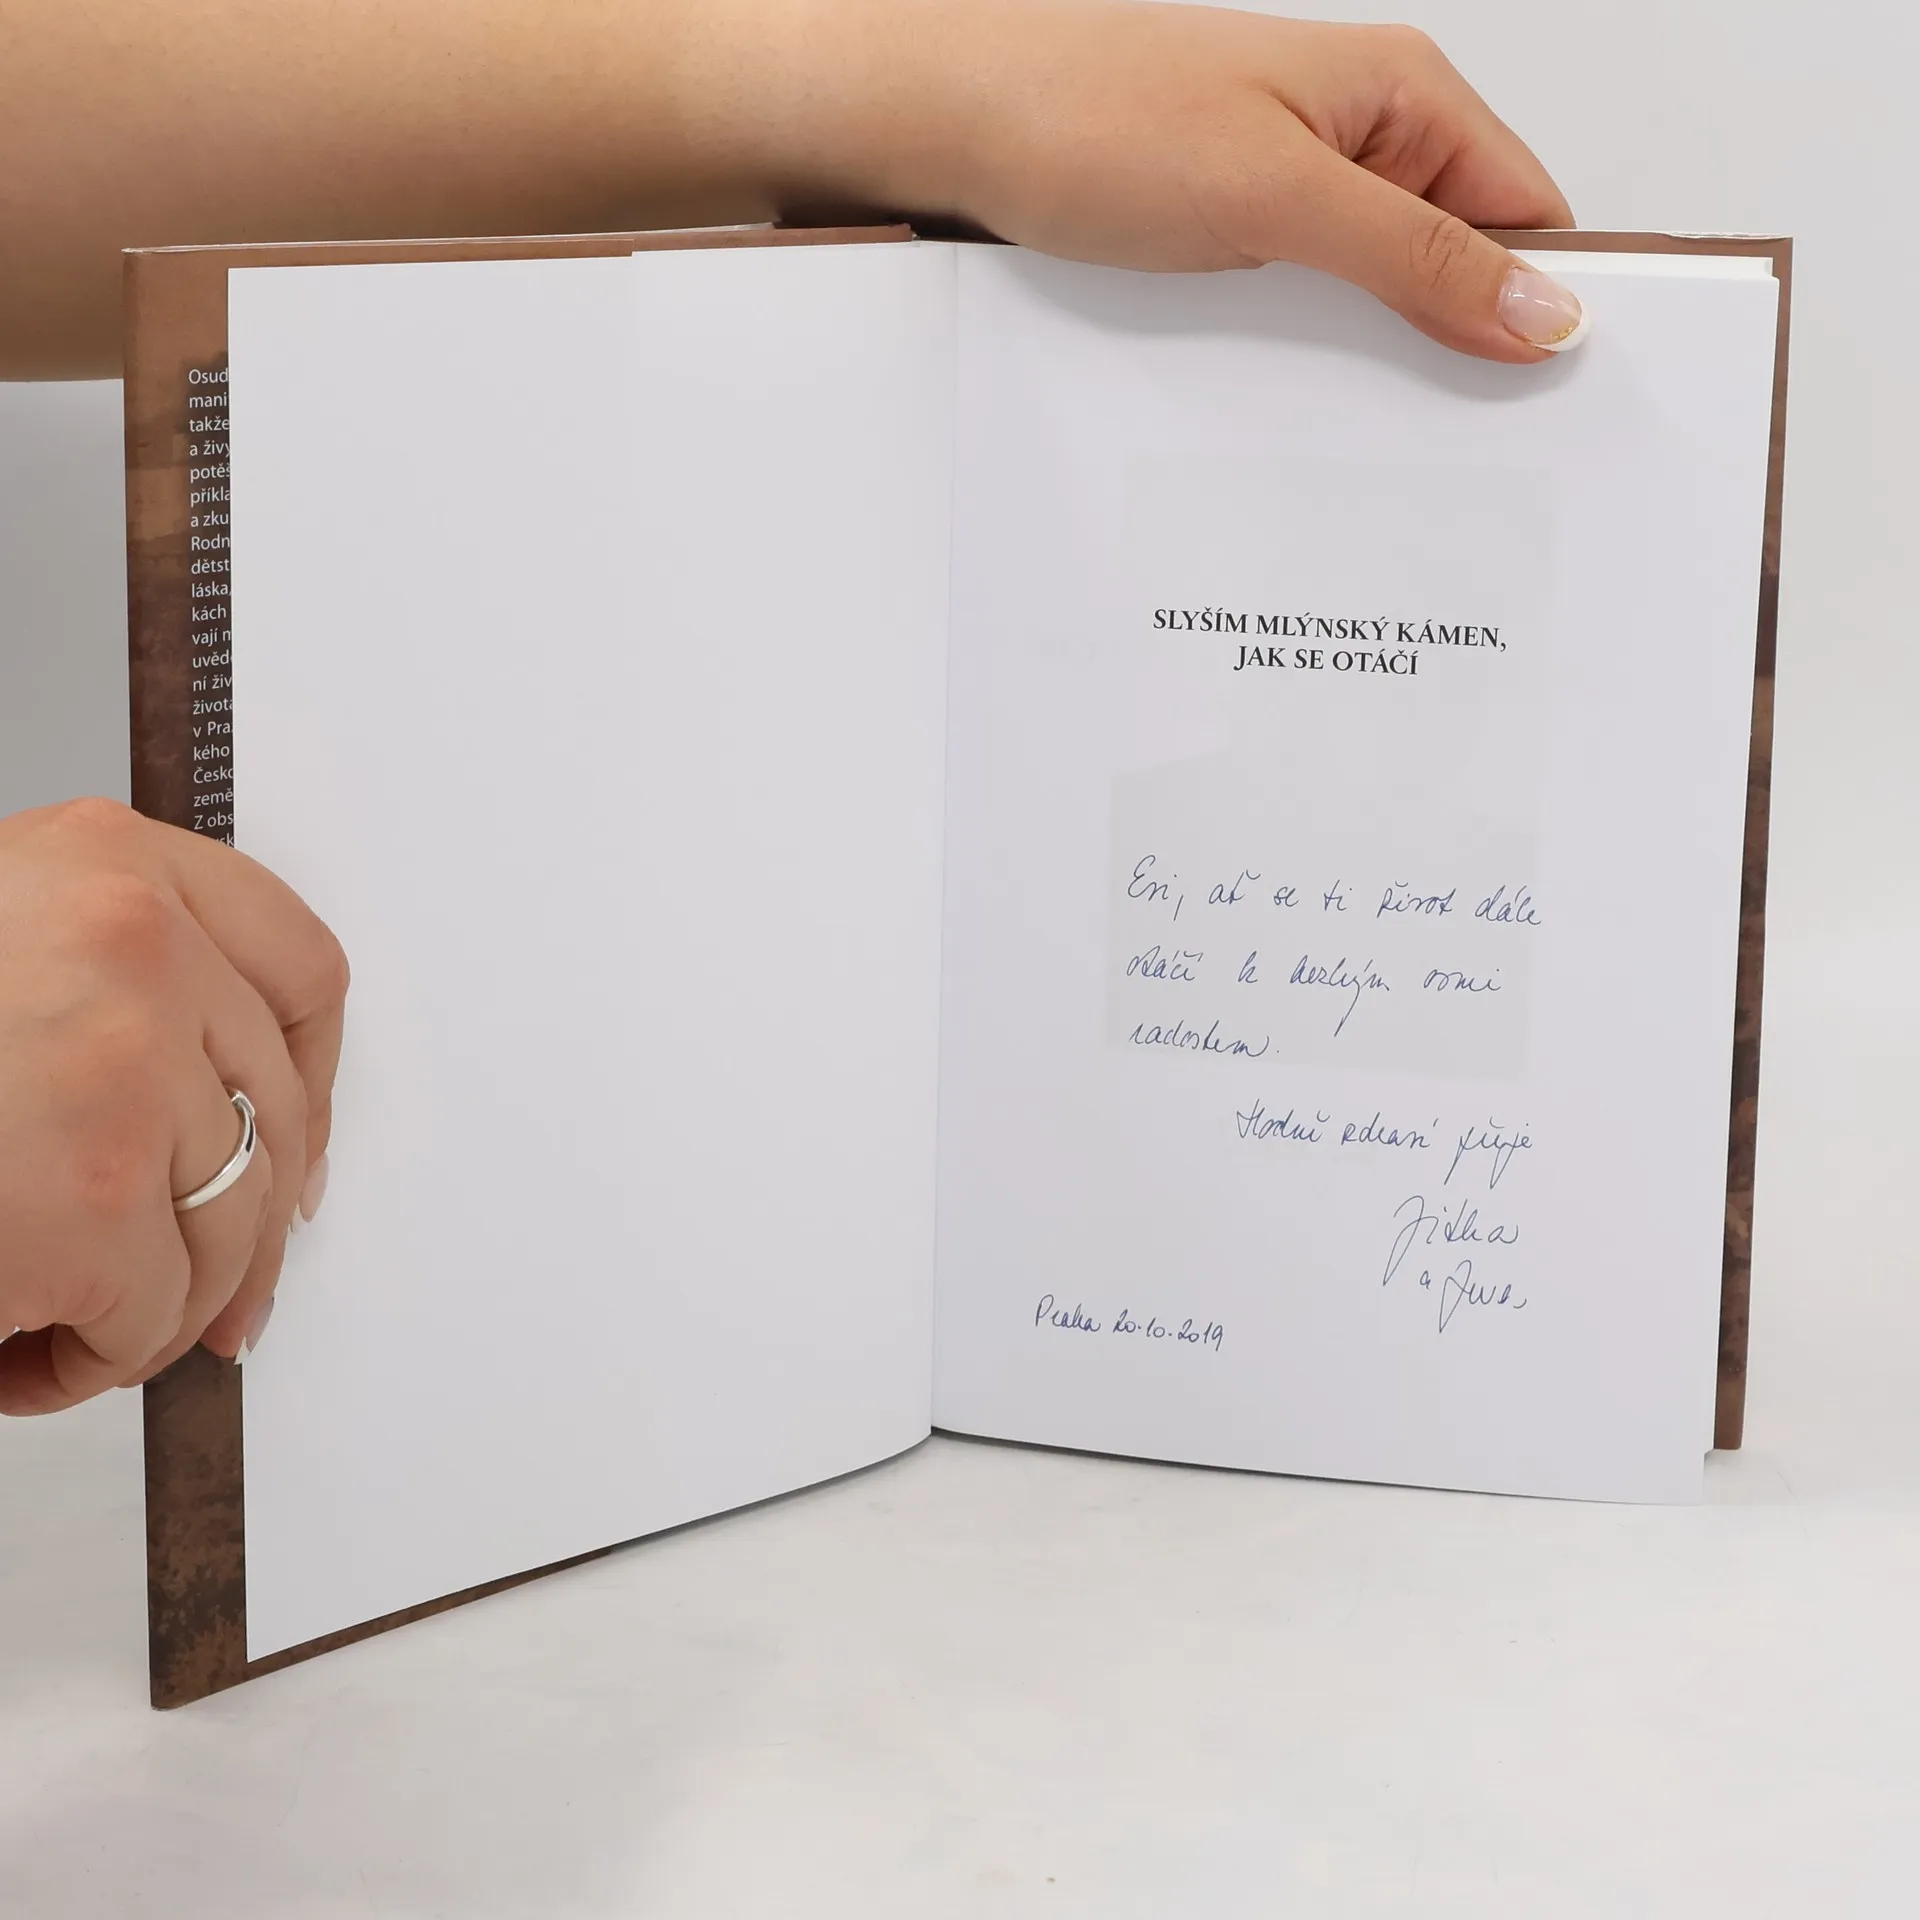 Osud
mani
takže
a živ
potěš
příkla
a zku
Rodn
dětst
láska,
kách
vají
uvěd
ní živ
život
v Pra
kého
Česko
země
Z obs
SLYŠÍM MLÝNSKÝ KÁMEN,
JAK SE OTÁČÍ
Evi, ať se ti život dále
otáčí k hezkým
radostem.
Hodně zdraví přeje
Jitka
a
Praha 20.10.2019